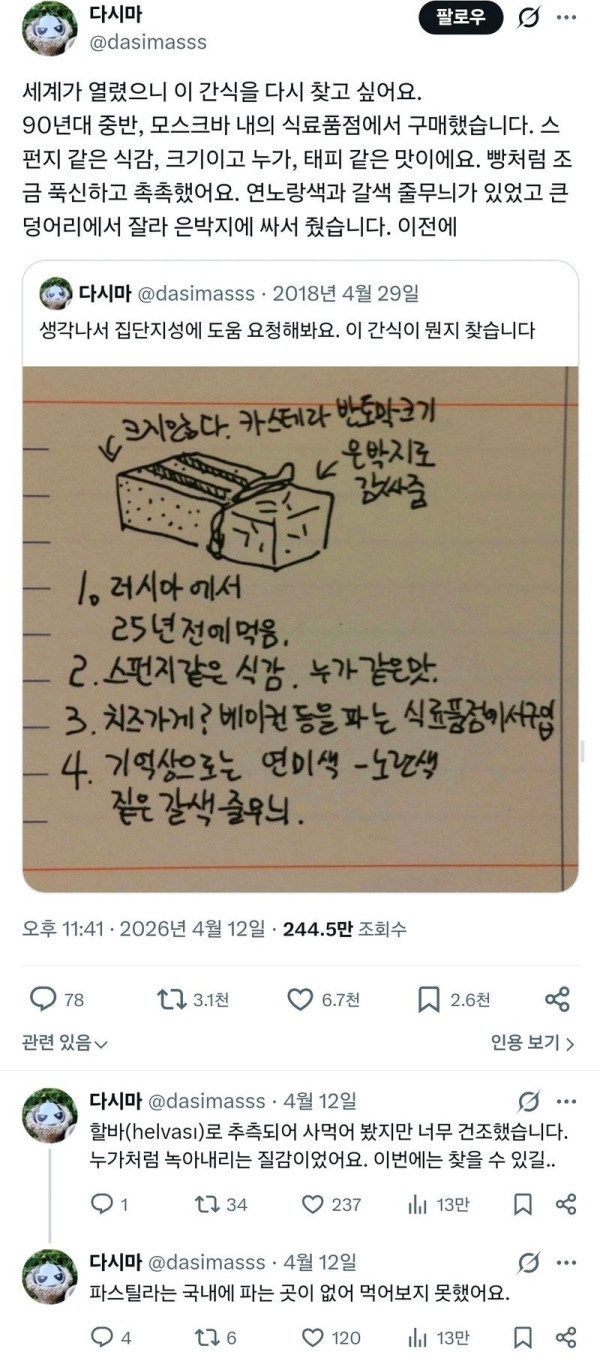 다시마
@dasimasss
팔로우
세계가 열렸으니 이 간식을 다시 찾고 싶어요.
90년대 중반, 모스크바 내의 식료품점에서 구매했습니다. 스
펀지 같은 식감, 크기이고 누가, 태피 같은 맛이에요. 빵처럼 조
금 푹신하고 촉촉했어요. 연노랑색과 갈색 줄무늬가 있었고 큰
덩어리에서 잘라 은박지에 싸서 줬습니다. 이전에
다시마 @dasimasss · 2018년 4월 29일
생각나서 집단지성에 도움 요청해봐요. 이 간식이 뭔지 찾습니다
크지않다. 카스테라 반토막크기
은박지로
감싸줌
1. 러시아에서
25년전에먹음.
2. 스펀지같은 식감. 누가같은맛.
3. 치즈가게? 베이컨등을 파는 식료품점에서구입
4. 기억상으로는 연미색 - 노란색
짙은 갈색 줄무늬.
오후 11:41 · 2026년 4월 12일 · 244.5만 조회수
78 3.1천 6.7천 2.6천
관련 있음 인용 보기
다시마 @dasimasss · 4월 12일
할바(helvası)로 추측되어 사먹어 봤지만 너무 건조했습니다.
누가처럼 녹아내리는 질감이었어요. 이번에는 찾을 수 있길..
1 34 237 13만
다시마 @dasimasss · 4월 12일
파스틸라는 국내에 파는 곳이 없어 먹어보지 못했어요.
4 6 120 13만